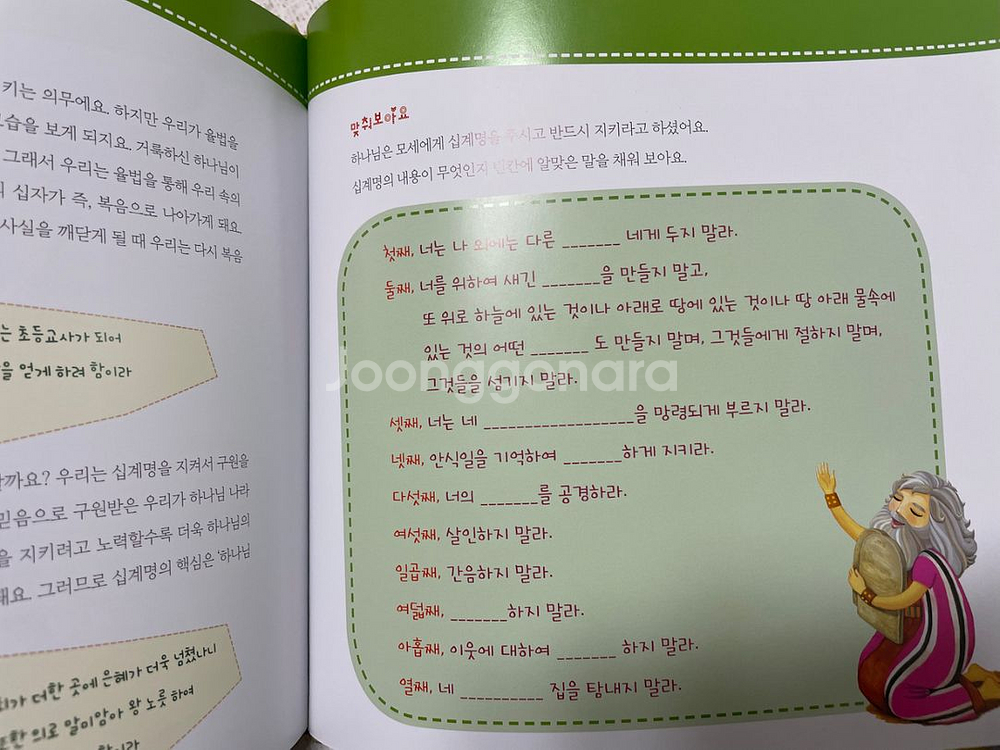 키는 의무에요. 하지만 우리가 율법을
모습을 보게 되지요. 거룩하신 하나님이
그래서 우리는 율법을 통해 우리 속의
십자가 즉, 복음으로 나아가게 돼요
사실을 깨닫게 될 때 우리는 다시 복음
는 초등교사가 되어
을 얻게 하려 함이라
까요? 우리는 십계명을 지켜서 구원을
믿음으로 구원받은 우리가 하나님 나라
을 지키려고 노력할수록 더욱 하나님의
돼요. 그러므로 십계명의 핵심은 '하나님
죄가 더한 곳에 은혜가 더욱 넘쳤나니
또한 의로 말미암아 왕 노릇 하여
함이라
맞춰보아요
하나님은 모세에게 십계명을 주시고 반드시 지키라고 하셨어요.
십계명의 내용이 무엇인지 빈칸에 알맞은 말을 채워 보아요.
첫째, 너는 나 외에는 다른 _______ 네게 두지 말라.
둘째, 너를 위하여 새긴 _______을 만들지 말고,
또 위로 하늘에 있는 것이나 아래로 땅에 있는 것이나 땅 아래 물속에
있는 것의 어떤 _______ 도 만들지 말며, 그것들에게 절하지 말며,
그것들을 섬기지 말라.
joonggonara
셋째, 너는 네 __________________을 망령되게 부르지 말라.
넷째, 안식일을 기억하여 _______하게 지키라.
다섯째, 너의 _______를 공경하라.
여섯째, 살인하지 말라.
일곱째, 간음하지 말라.
여덟째, _______하지 말라.
아홉째, 이웃에 대하여 _______ 하지 말라.
열째, 네 __________ 집을 탐내지 말라.